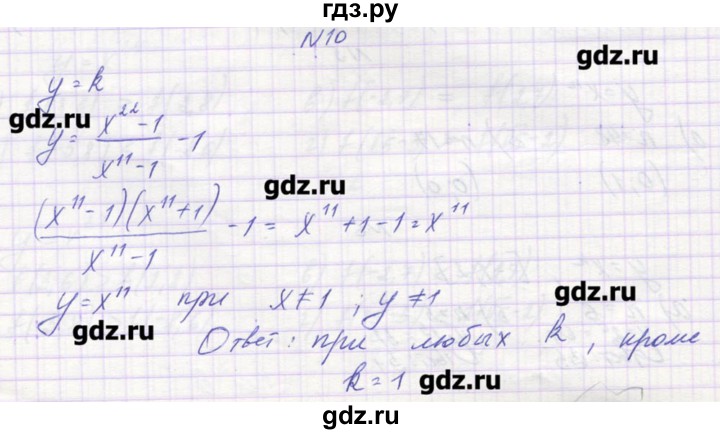 гдз.ру
N10
gdz.ru
y = k
gdz.ru
y = x²²-1 / x¹¹-1 - 1
gdz.ru
(x¹¹-1)(x¹¹+1) / x¹¹-1 - 1 = x¹¹+1-1 = x¹¹
gdz.ru
y = x¹¹ при x ≠ 1 ; y ≠ 1
gdz.ru
Ответ: при любых k, кроме
k = 1 gdz.ru
gdz.ru